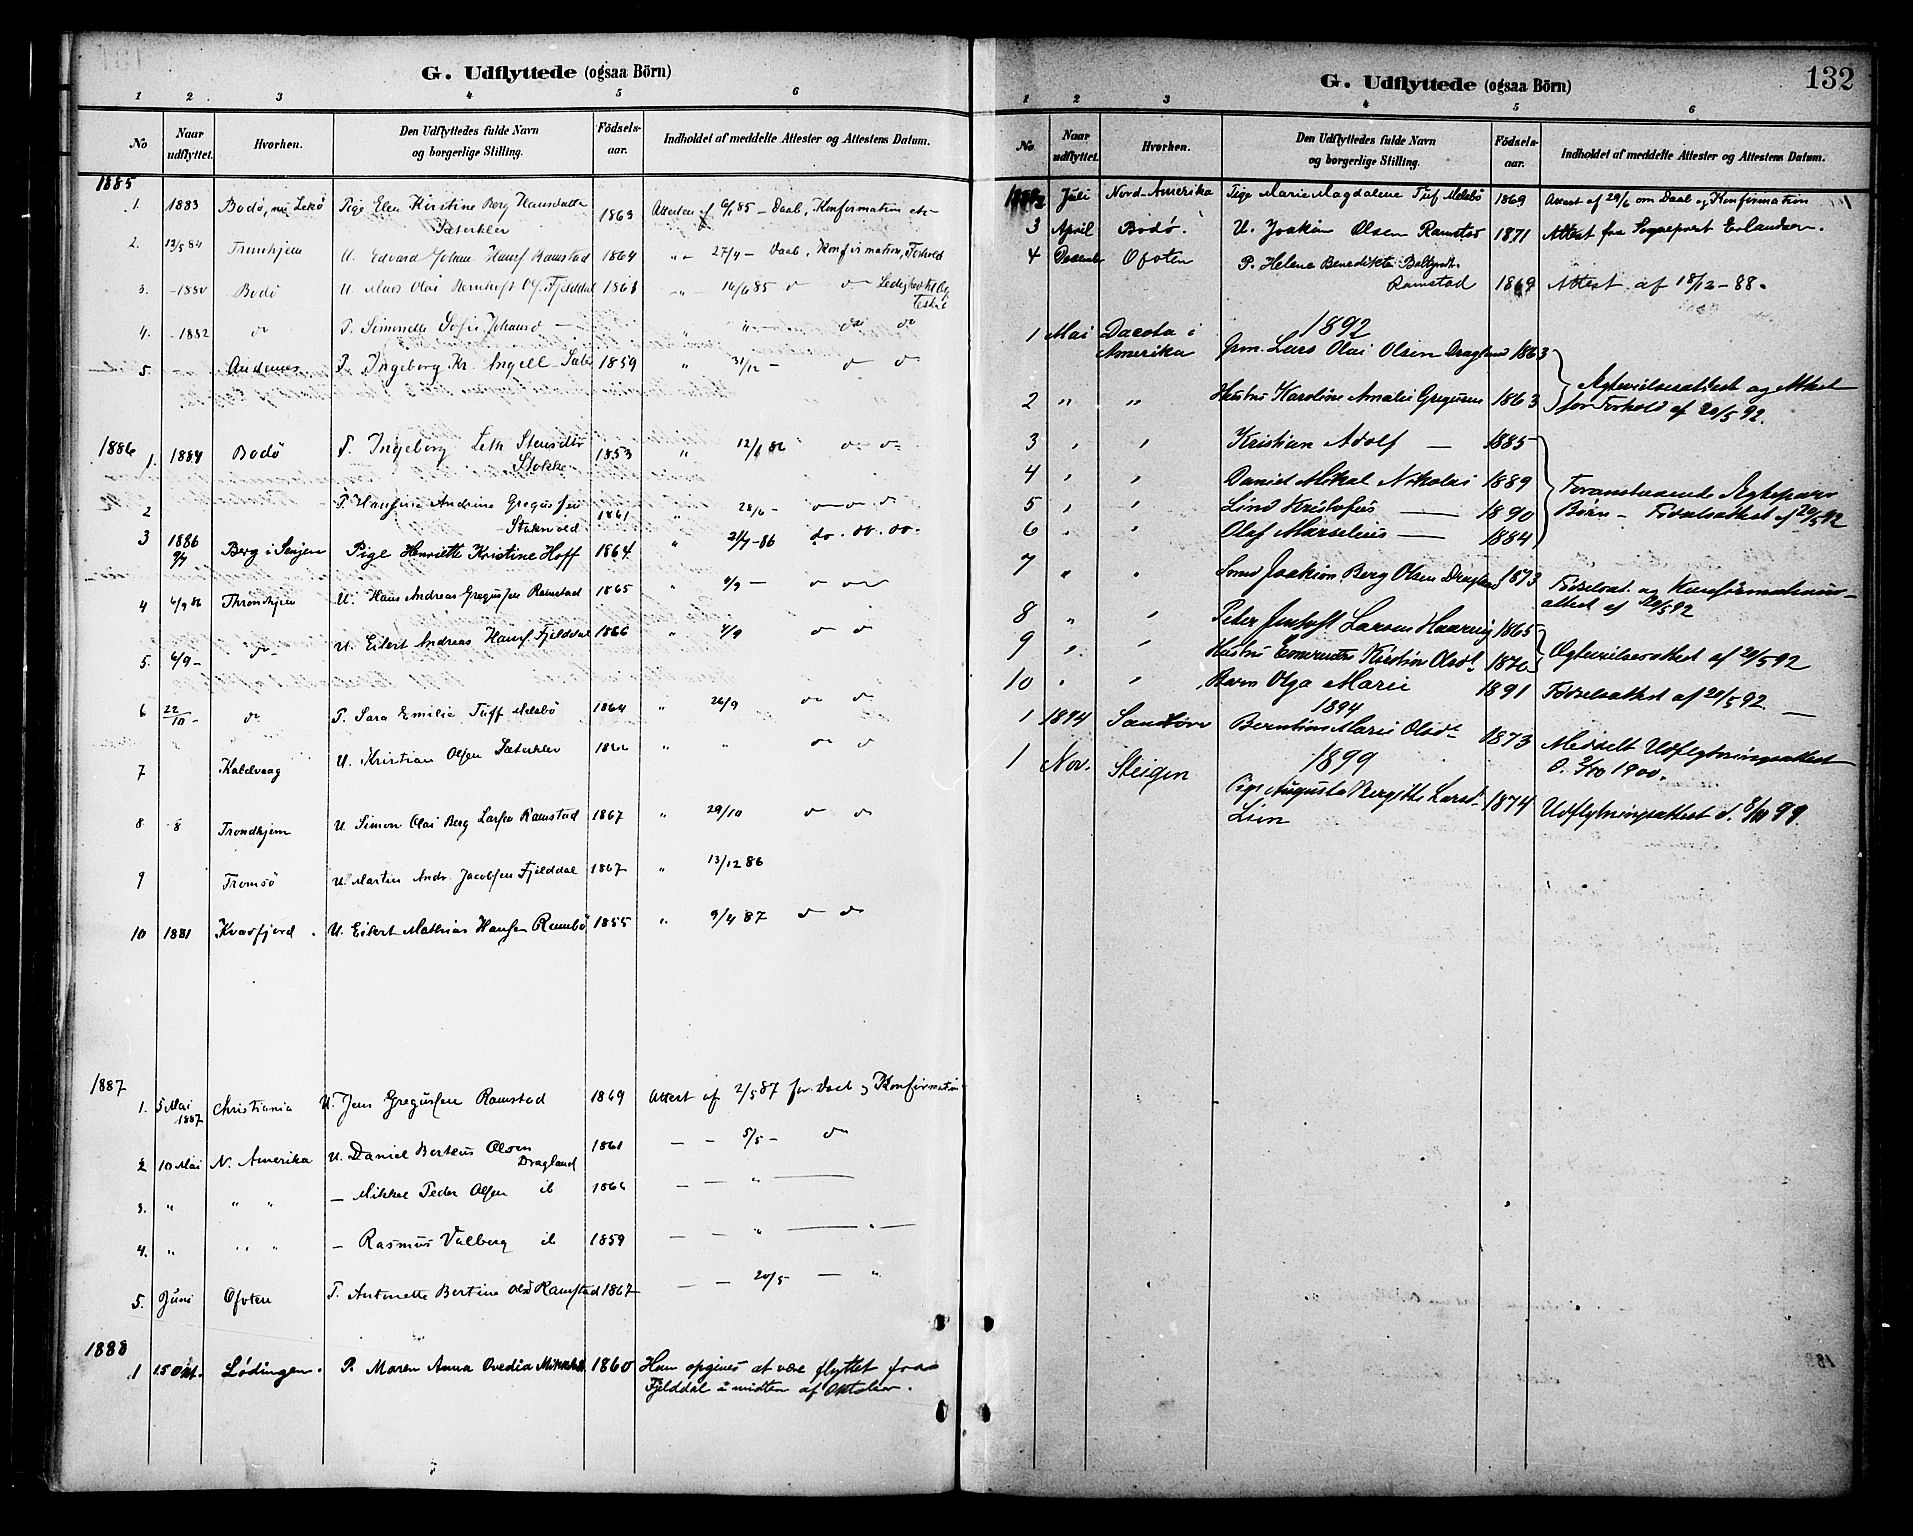 G. Udflyttede (ogsaa Börn)
1 2 3 4 5 6
No
Naar udflyttet.
Hvorhen.
Den Udflyttedes fulde Navn og borgerlige Stilling.
Födsels-aar.
Indholdet af meddelte Attester og Attestens Datum.
1885
1. 1883 Bodö, nu Lekö Pige Elen Kirstine Berg Hansdatter 1863 Attesten af 85 - Daab, Konfirmation
2. 13/5 84 Tronhjem U. Edvard Johan Hansf Ramstad 1864 " - 27/4 - Daab, Konfirmation, Forhold
3. -1880 Bodö U. Olai Fjelddal 16/6 85 do do
4. -1882 do P. Do do
5. - Andenes P. Ingeborg Kr. Angell 1859 " 31/12 - do do
1886
1. 1884 Bodö P. Ingeborg Stensdtr 1853 " 12/1 86 do do
Stokke
2 P. Andrine Gregusfen 1861 " 28/6 - do do do
3 1886 Berg i Senjen Pige Henriette Kristine Hoff 1864. " 21/7 - 86 do. do. do.
4 4/9 86 Thronhjem U. Hans Andreas Gregusfen Ramstad 1865 " 4/9 - do do
5. 6/9 - do U. Eilert Andreas Hansf Fjelddal 1866 " 4/9 do do
6 22/10 - do P. Sara Emilie Tuff Melsbö 1864 " 26/9 do do
7 Kabelvaag U. Kristian Olsen " " do do
8 Trondhjem U. Simon Olai Berg Larsen Ramstad 1867 " 29/10 do do
9 Tromsö U. Martin Andr. Jacobsen Fjelddal 1867 " 13/12 86
10 1881 Kvæfjord. U. Eilert Mathias Hansen 1855 " 9/4 87 do do
1887
1. 5 Mai 1887 Christiania U. Jens Gregusfen Ramstad 1869 Attest af 2/5 87 for Daab og Konfirmation
2 10 Mai N. Amerika U. Daniel Berteus Olsen 1861 — — 5/5 - do
Dragland
3. " " " — Mikkel Peder Olsen ib — — " —
4. " " " — Rasmus Valberg ib 1859 — — " — " —
5. Juni Ofoten P. Antonette Bertine Olsd Ramstad 1867 — — 20/5 — "
1888
1 15 Okt. Lødingen. P. Maren Anna Ovedia 1860 Hun opgives at være flyttet fra
Fjelddal i midten af Oktober.
132
G. Udflyttede (ogsaa Börn)
1 2 3 4 5 6
No.
Naar udflyttet.
Hvorhen.
Den Udflyttedes fulde Navn og borgerlige Stilling.
Födsels-aar.
Indholdet af meddelte Attester og Attestens Datum.
Juli Nord-Amerika Pige Marie Magdalene Tuf Melsbö 1869 Attest af 29/6 om Daab og Konfirmation
3 April Bodö. U. Joakim Olsen Ramstad 1871 Attest fra Sogneprest Erlandsen.
4 December Ofoten P. Helene Benedikte
Ramstad 1869 Attest af 18/12 - 88.
1892
1 Mai Dacota i Amerika Grm. Lars Olai Olsen Dragland 1863
2 " " Hustru Karoline Amalie Gregusen 1863 Ægtevielsesattest og Attest
for Forhold af 20/5 92.
3 " " Kristian Adolf — 1885
4 " " Daniel Mikal Nikolai 1889 Foranstaaende Ægtepars
5 " " Lind Kristofus — 1890 Børn - Födselsattest af 29/5 92
6 " " Olaf Marselius — 1884
7 " " Joakim Berg Olsen Dragland 1873 Födselsat. og Konfirmations-
attest af 20/5 92
8 " " Peter Jentoft Larsen 1865
9 " " Hustru Kirstine Olsdt 1870 Ægtevielsesattest af 21/5 92
10 " " Barn Olga Marie 1891 Födselsattest af 21/5 92 —
1894
1 1894 Sandtorv Berntine Marie Olsdt 1873 Meddelt Udflytningsattest
d. 2/10 1900.
1899
1 Nov. Steigen Pige Augusta Bergitte Larsd 1874 Udflytningsattest d. 8/11 99.
Lien